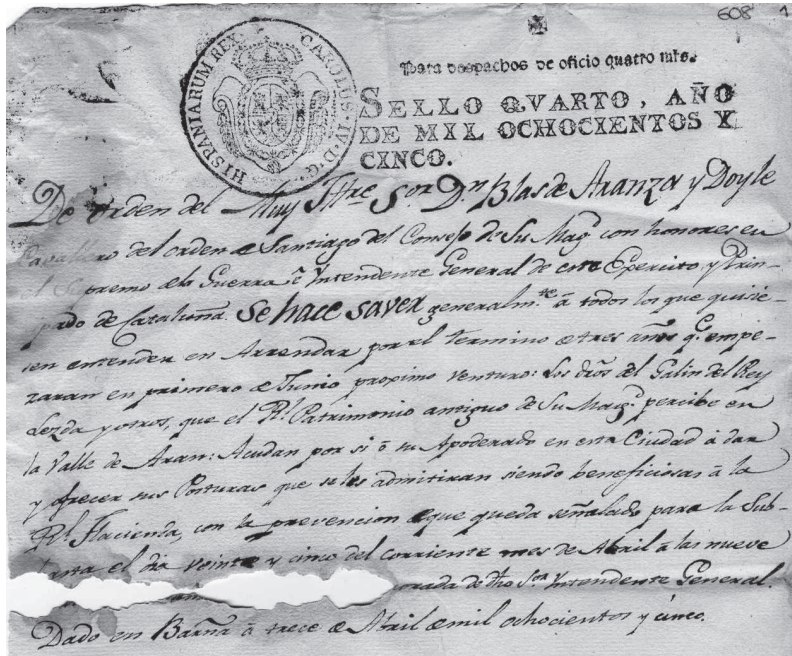 608 1
Para despachos de oficio quatro mrs.
HISPANIARUM REX CAROLUS IV D G
SELLO QVARTO, AÑO
DE MIL OCHOCIENTOS Y
CINCO.
De orden del Muy Iltre Sor Dn Blas de Aranza y Doyle
Cavallero del orden de Santiago del Consejo de Su Magd con honores en
el Supremo de la Guerra é Intendente General de este Exercito y Prin-
pado de Cataluña. Se hace saver generalmte á todos los que quisie-
sen entender en Arrendar por el termino de tres años qe empe-
zaran en primero de Junio proximo venturo: Los dros del Galin del Rey
Lezda y otros, que el Rl Patrimonio antiguo de Su Magd percibe en
la Valle de Aran: Acudan por si ó su Apoderado en esta Ciudad á dar
y ofrecer sus Posturas que se les admitiran siendo beneficiosas á la
Rl Hacienda, con la prevencion de que queda señalado para la Sub-
hasta el dia veinte y cinco del corriente mes de Abril á las nueve
orada de dho Sor Intendente General.
Dado en Barna á trece de Abril de mil ochocientos y cinco.